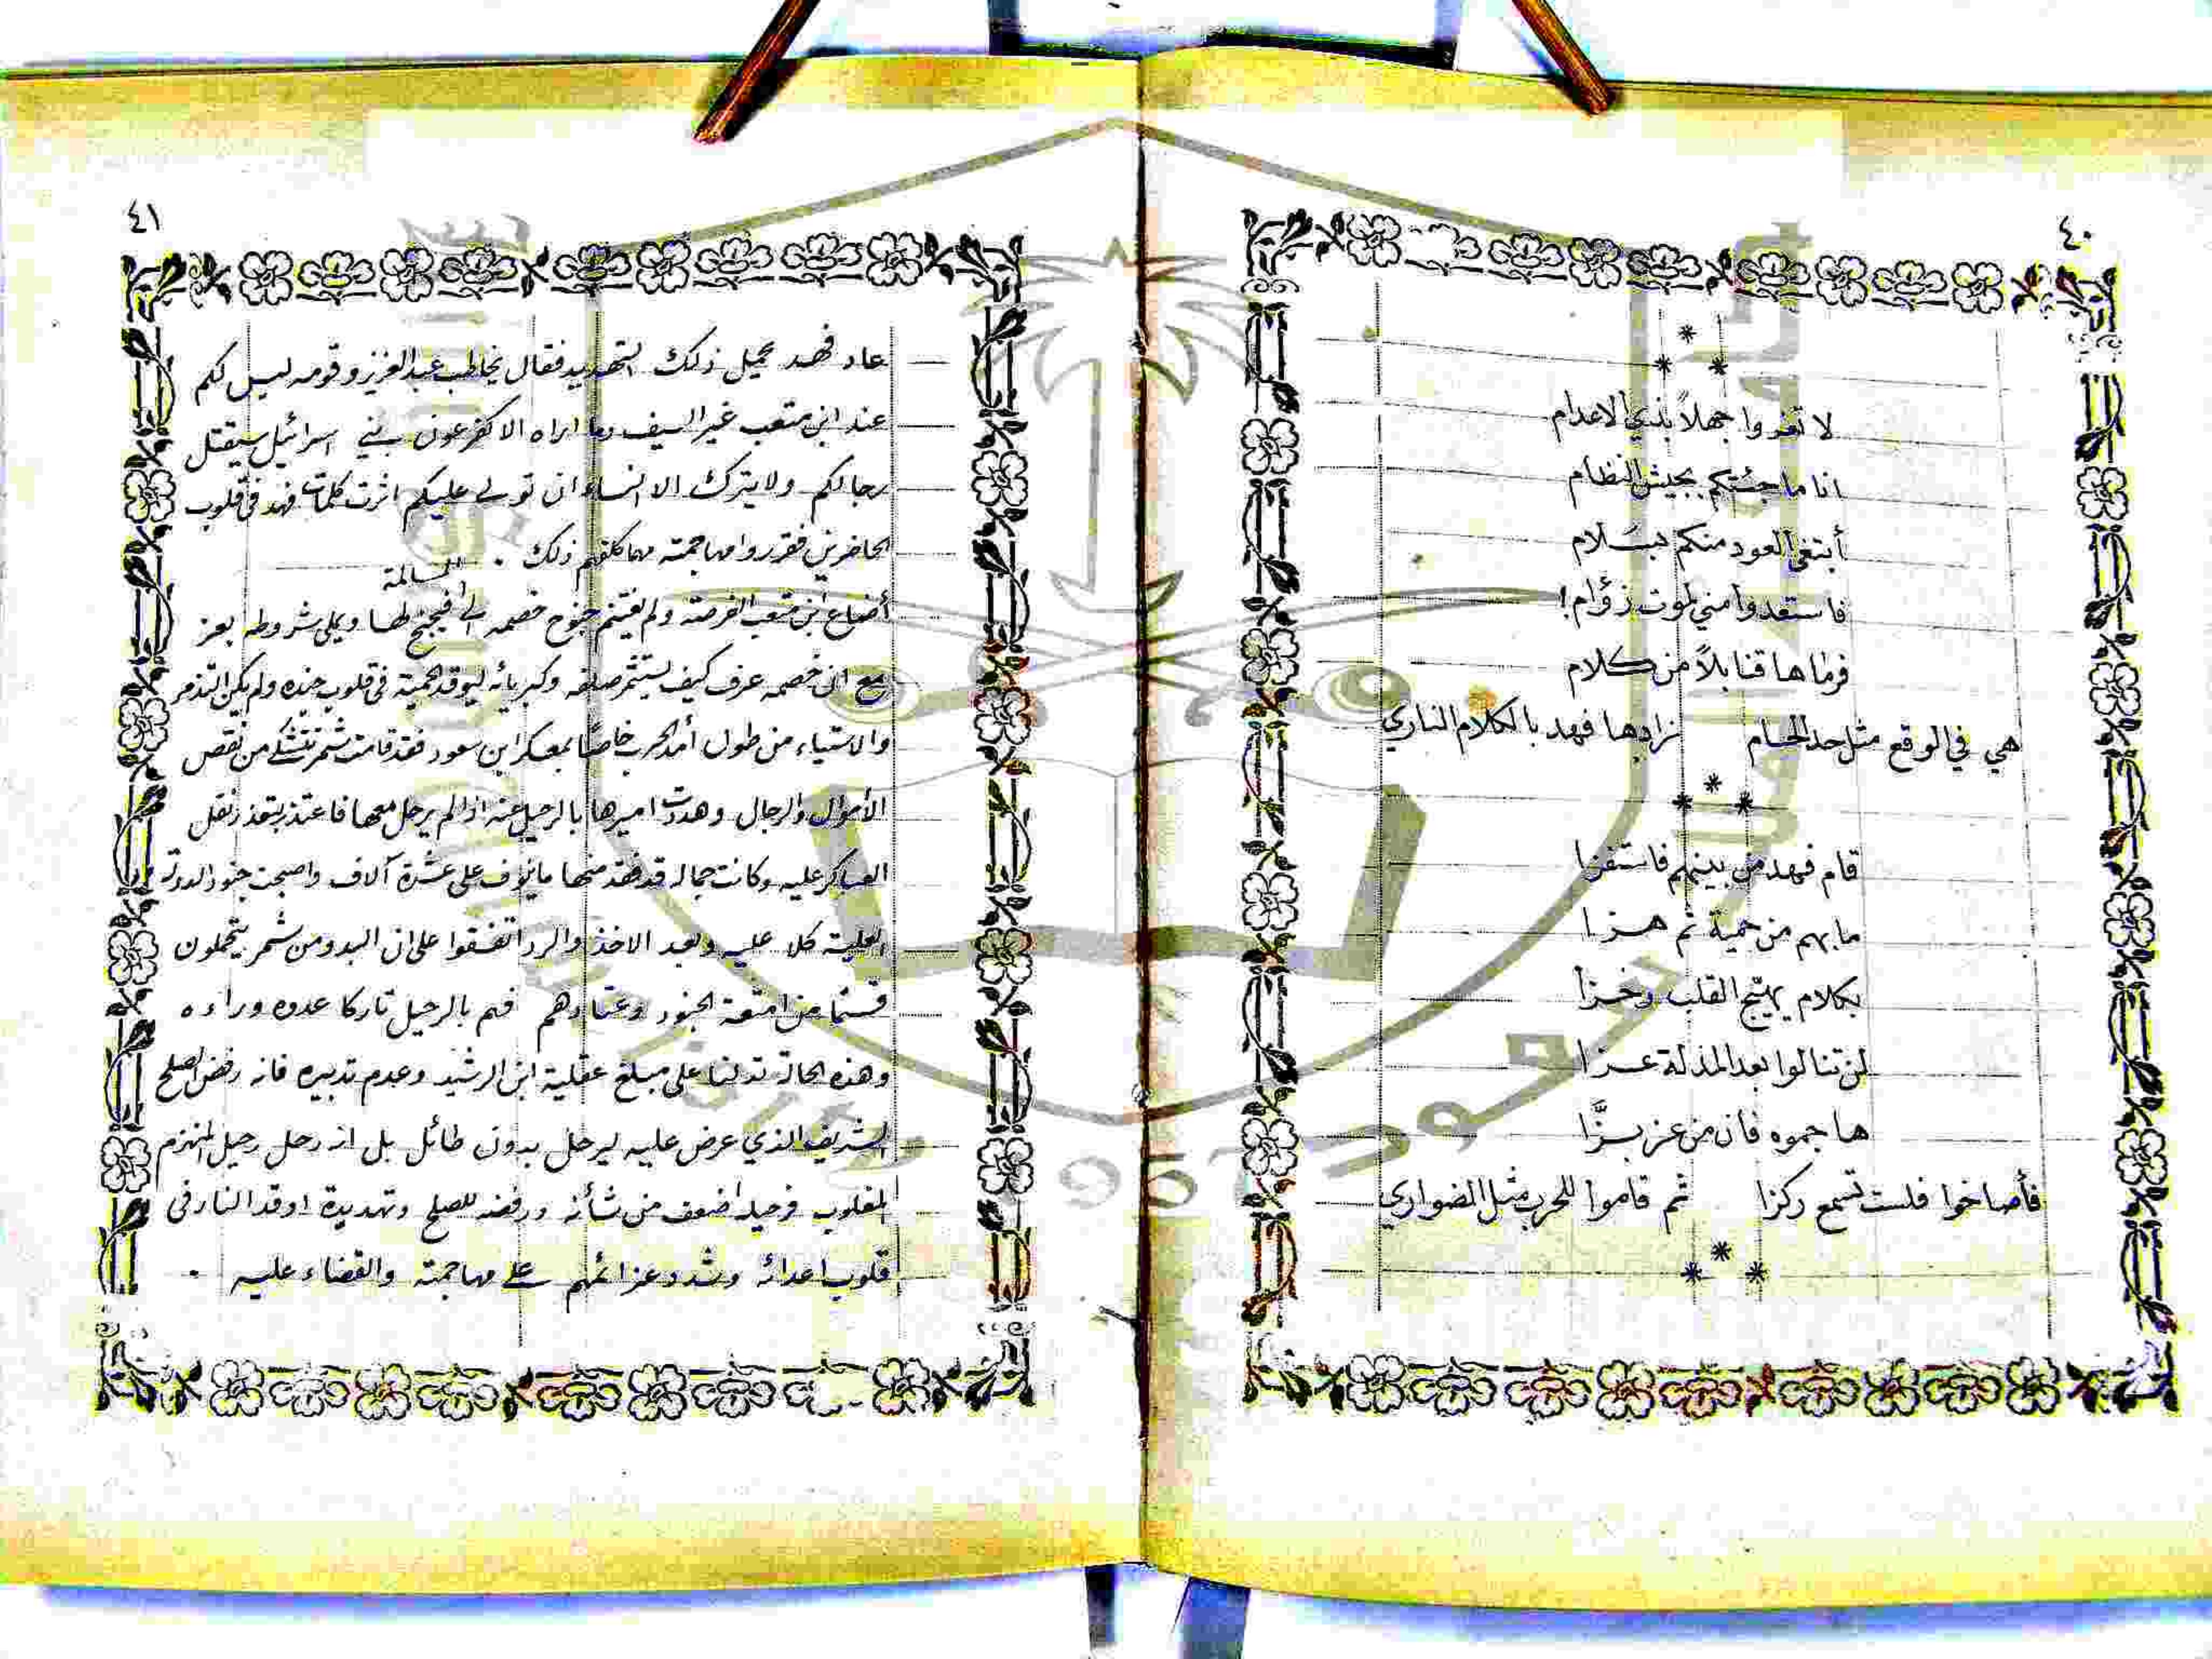 ٤٠
*
* *
لا تغروا جهلاً بذي الاعدام
انا ما جئتكم بجيش النظام
أبتغي العود منكم بسلام
فاستعدوا مني لموت زؤام!
فرماها قنابلاً من كلام
هي في الوقع مثل حد الحسام زادها فهد بالكلام الناري
*
* *
قام فهد من بينهم فاستفزا
ما بهم من حمية ثم هزا
بكلام يهيّج القلب وخزا
لن تنالوا بعد المذلة عزا
هاجموه فان من عز بزَّا
فأصاخوا فلست تسمع ركزا ثم قاموا للحرب مثل الضواري
*
* *
٤١
عاد فهد يحمل ذلك التهديد فقال يخاطب عبدالعزيز وقومه ليس لكم
عند ابن متعب غير السيف وما اراه الا كفرعون بني اسرائيل سيقتل
رجالكم ولا يترك الا النساء ان تولى عليكم اثرت كلمات فهد في قلوب
الحاضرين فقرروا مهاجمته مهما كلفهم ذلك .
أضاع ابن متعب الفرصة ولم يغتنم جنوح خصمه الى المسالمة فيجنح لها ويملي شروطه بعز
مع ان خصمه عرف كيف يستثمر صلفه وكبريائه ليوقد الحمية في قلوب جنده ولم يكن التذمر
والاستياء من طول أمد الحرب خاصًا بمعسكر ابن سعود فقد قامت شمر تتشكى من نقص
الأموال والرجال وهددت اميرها بالرحيل عنه اذا لم يرحل معها فاعتذر بتعذر نقل
العساكر عليه وكانت جماله قد فقد منها ما ينوف على عشرة آلاف واصبحت جنود الدولة
العلية كلا عليه وبعد الاخذ والرد اتفقوا على ان البدو من شمر يتحملون
قسمًا من امتعة الجنود وعتادهم فهم بالرحيل تاركا عدوه وراءه
وهذه الحالة تدلنا على مبلغ عقلية ابن الرشيد وعدم تدبيره فانه رفض الصلح
الشريف الذي عرض عليه ليرحل بدون طائل بل انه رحل رحيل المنهزم
المغلوب فرحيله اضعف من شأنه ورفضه للصلح وتهديده اوقد النار في
قلوب اعدائه وشدد عزائمهم على مهاجمته والقضاء عليه .